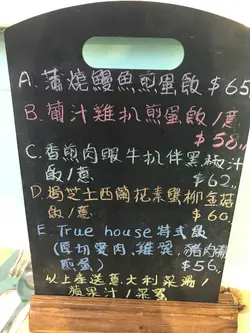 A. 蒲燒鰻魚煎蛋飯 $65
B. 葡汁雞扒煎蛋飯/意
$58
C. 香煎肉眼牛扒伴黑椒汁
飯/意 $62
D. 焗芝士西蘭花素蜜柳金菇
飯/意 $60
E. True house 特式飯
(厚切 肉, 雞翼, 豬肉腸
煎蛋) $56
以上奉送意大利菜湯/
蘋果汁/